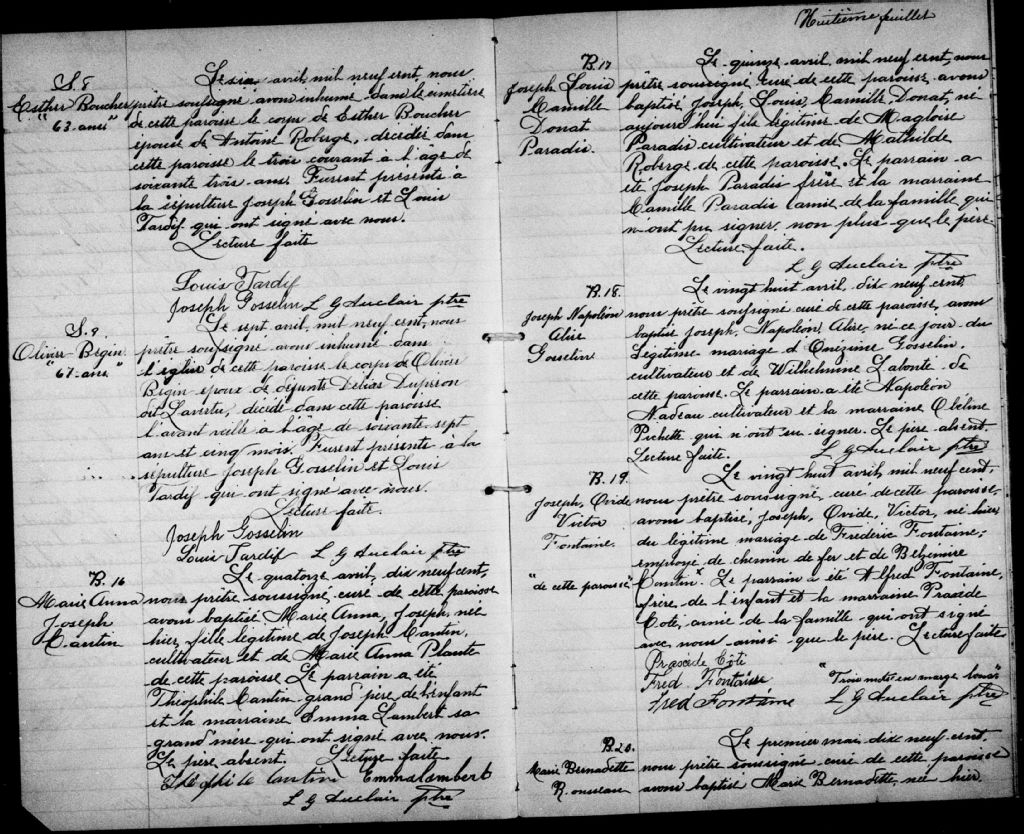 Huitième feuillet
S. 8
Esther Boucher
"63 ans"
Le six avril mil neuf cent, nous
prêtre soussigné avons inhumé dans le cimetière
de cette paroisse le corps de Esther Boucher
épouse de Antoine Roberge, décédée dans
cette paroisse le trois courant à l'âge de
soixante trois ans. Furent présents à
la sépulture Joseph Gosselin et Louis
Tardif qui ont signé avec nous.
Lecture faite
Louis Tardif
Joseph Gosselin L G Auclair ptre
S. 9
Olivier Bégin
"67 ans"
Le sept avril, mil neuf cent, nous
prêtre soussigné avons inhumé dans
l'église de cette paroisse le corps de Olivier
Bégin époux de défunte Délias
dit Lavertu, décédé dans cette paroisse
l'avant veille à l'âge de soixante sept
ans et cinq mois. Furent présents à la
sépulture Joseph Gosselin et Louis
Tardif qui ont signé avec nous.
Lecture faite.
Joseph Gosselin
Louis Tardif L G Auclair ptre
B. 16
Marie Anna
Joseph
Cantin
Le quatorze avril, dix neuf cent,
nous prêtre soussigné, curé de cette paroisse
avons baptisé Marie Anna, Joseph, née
hier, fille légitime de Joseph Cantin,
cultivateur et de Marie Anna Plante
de cette paroisse. Le parrain a été
Théophile Cantin grand père de l'enfant
et la marraine Emma Lambert sa
grand'mère qui ont signé avec nous.
Le père absent. Lecture faite
Théophile Cantin Emma Lambert
L G Auclair ptre
B. 17
Joseph Louis
Camille
Donat
Paradis.
Le quinze avril, mil neuf cent, nous
prêtre soussigné, curé de cette paroisse avons
baptisé Joseph, Louis, Camille, Donat, né
aujourd'hui fils légitime de Magloire
Paradis cultivateur et de Mathilde
Roberge de cette paroisse. Le parrain a
été Joseph Paradis frère et la marraine
Camille Paradis amie de la famille qui
n'ont pu signer, non plus que le père
Lecture faite.
L G Auclair ptre
B. 18.
Joseph Napoléon
Alire
Gosselin
Le vingt huit avril, dix neuf cent,
nous prêtre soussigné curé de cette paroisse, avons
baptisé Joseph, Napoléon, Alire, né ce jour du
légitime mariage d'Onézime Gosselin,
cultivateur et de Wilhelmine Labonté de
cette paroisse. Le parrain a été Napoléon
Nadeau cultivateur et la marraine
Pichette qui n'ont su signer. Le père absent.
Lecture faite. L G Auclair ptre
B. 19.
Joseph, Ovide
Victor
Fontaine.
"de cette paroisse"
Le vingt huit avril, mil neuf cent,
nous prêtre soussigné, curé de cette paroisse,
avons baptisé, Joseph, Ovide, Victor, né hier
du légitime mariage de Frédéric Fontaine,
employé de chemin de fer et de
Cantin. Le parrain a été Alfred Fontaine,
frère de l'enfant et la marraine Praxède
Coté, amie de la famille qui ont signé
avec nous ainsi que le père. Lecture faite
Praxède Côté
Fred Fontaine "Trois mots en marge bons"
Fred Fontaine L G Auclair ptre
B. 20.
Marie Bernadette
Rousseau
Le premier mai, dix neuf cent,
nous prêtre soussigné curé de cette paroisse
avons baptisé Marie Bernadette, née hier